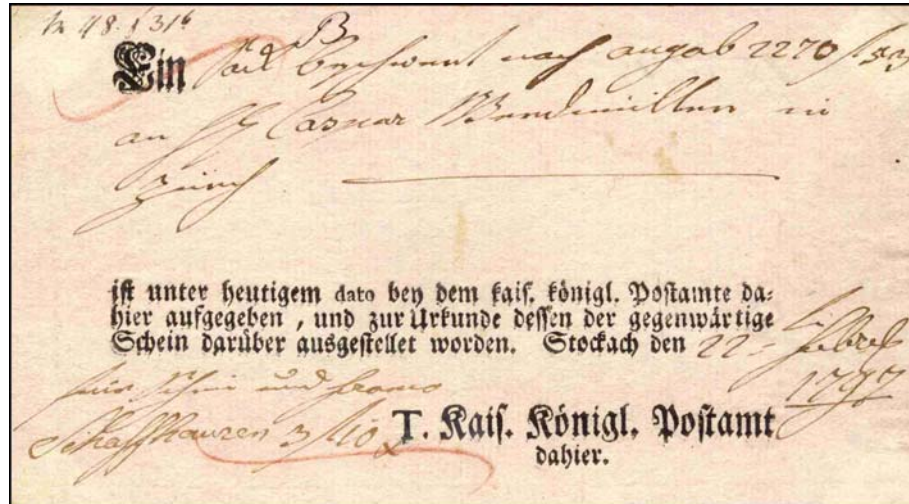 B
Ein Sack beschwert nach angab 2270 f 53
an H Caspar Werdmüller in
Zürich
ist unter heutigem dato bey dem kaif. königl. Postamte da=
hier aufgegeben, und zur Urkunde dessen der gegenwärtige
Schein darüber ausgestellet worden. Stockach den 22=
1797
für schein und franco
Schaffhausen 3 f 10 x
T. Kais. Königl. Postamt
dahier.